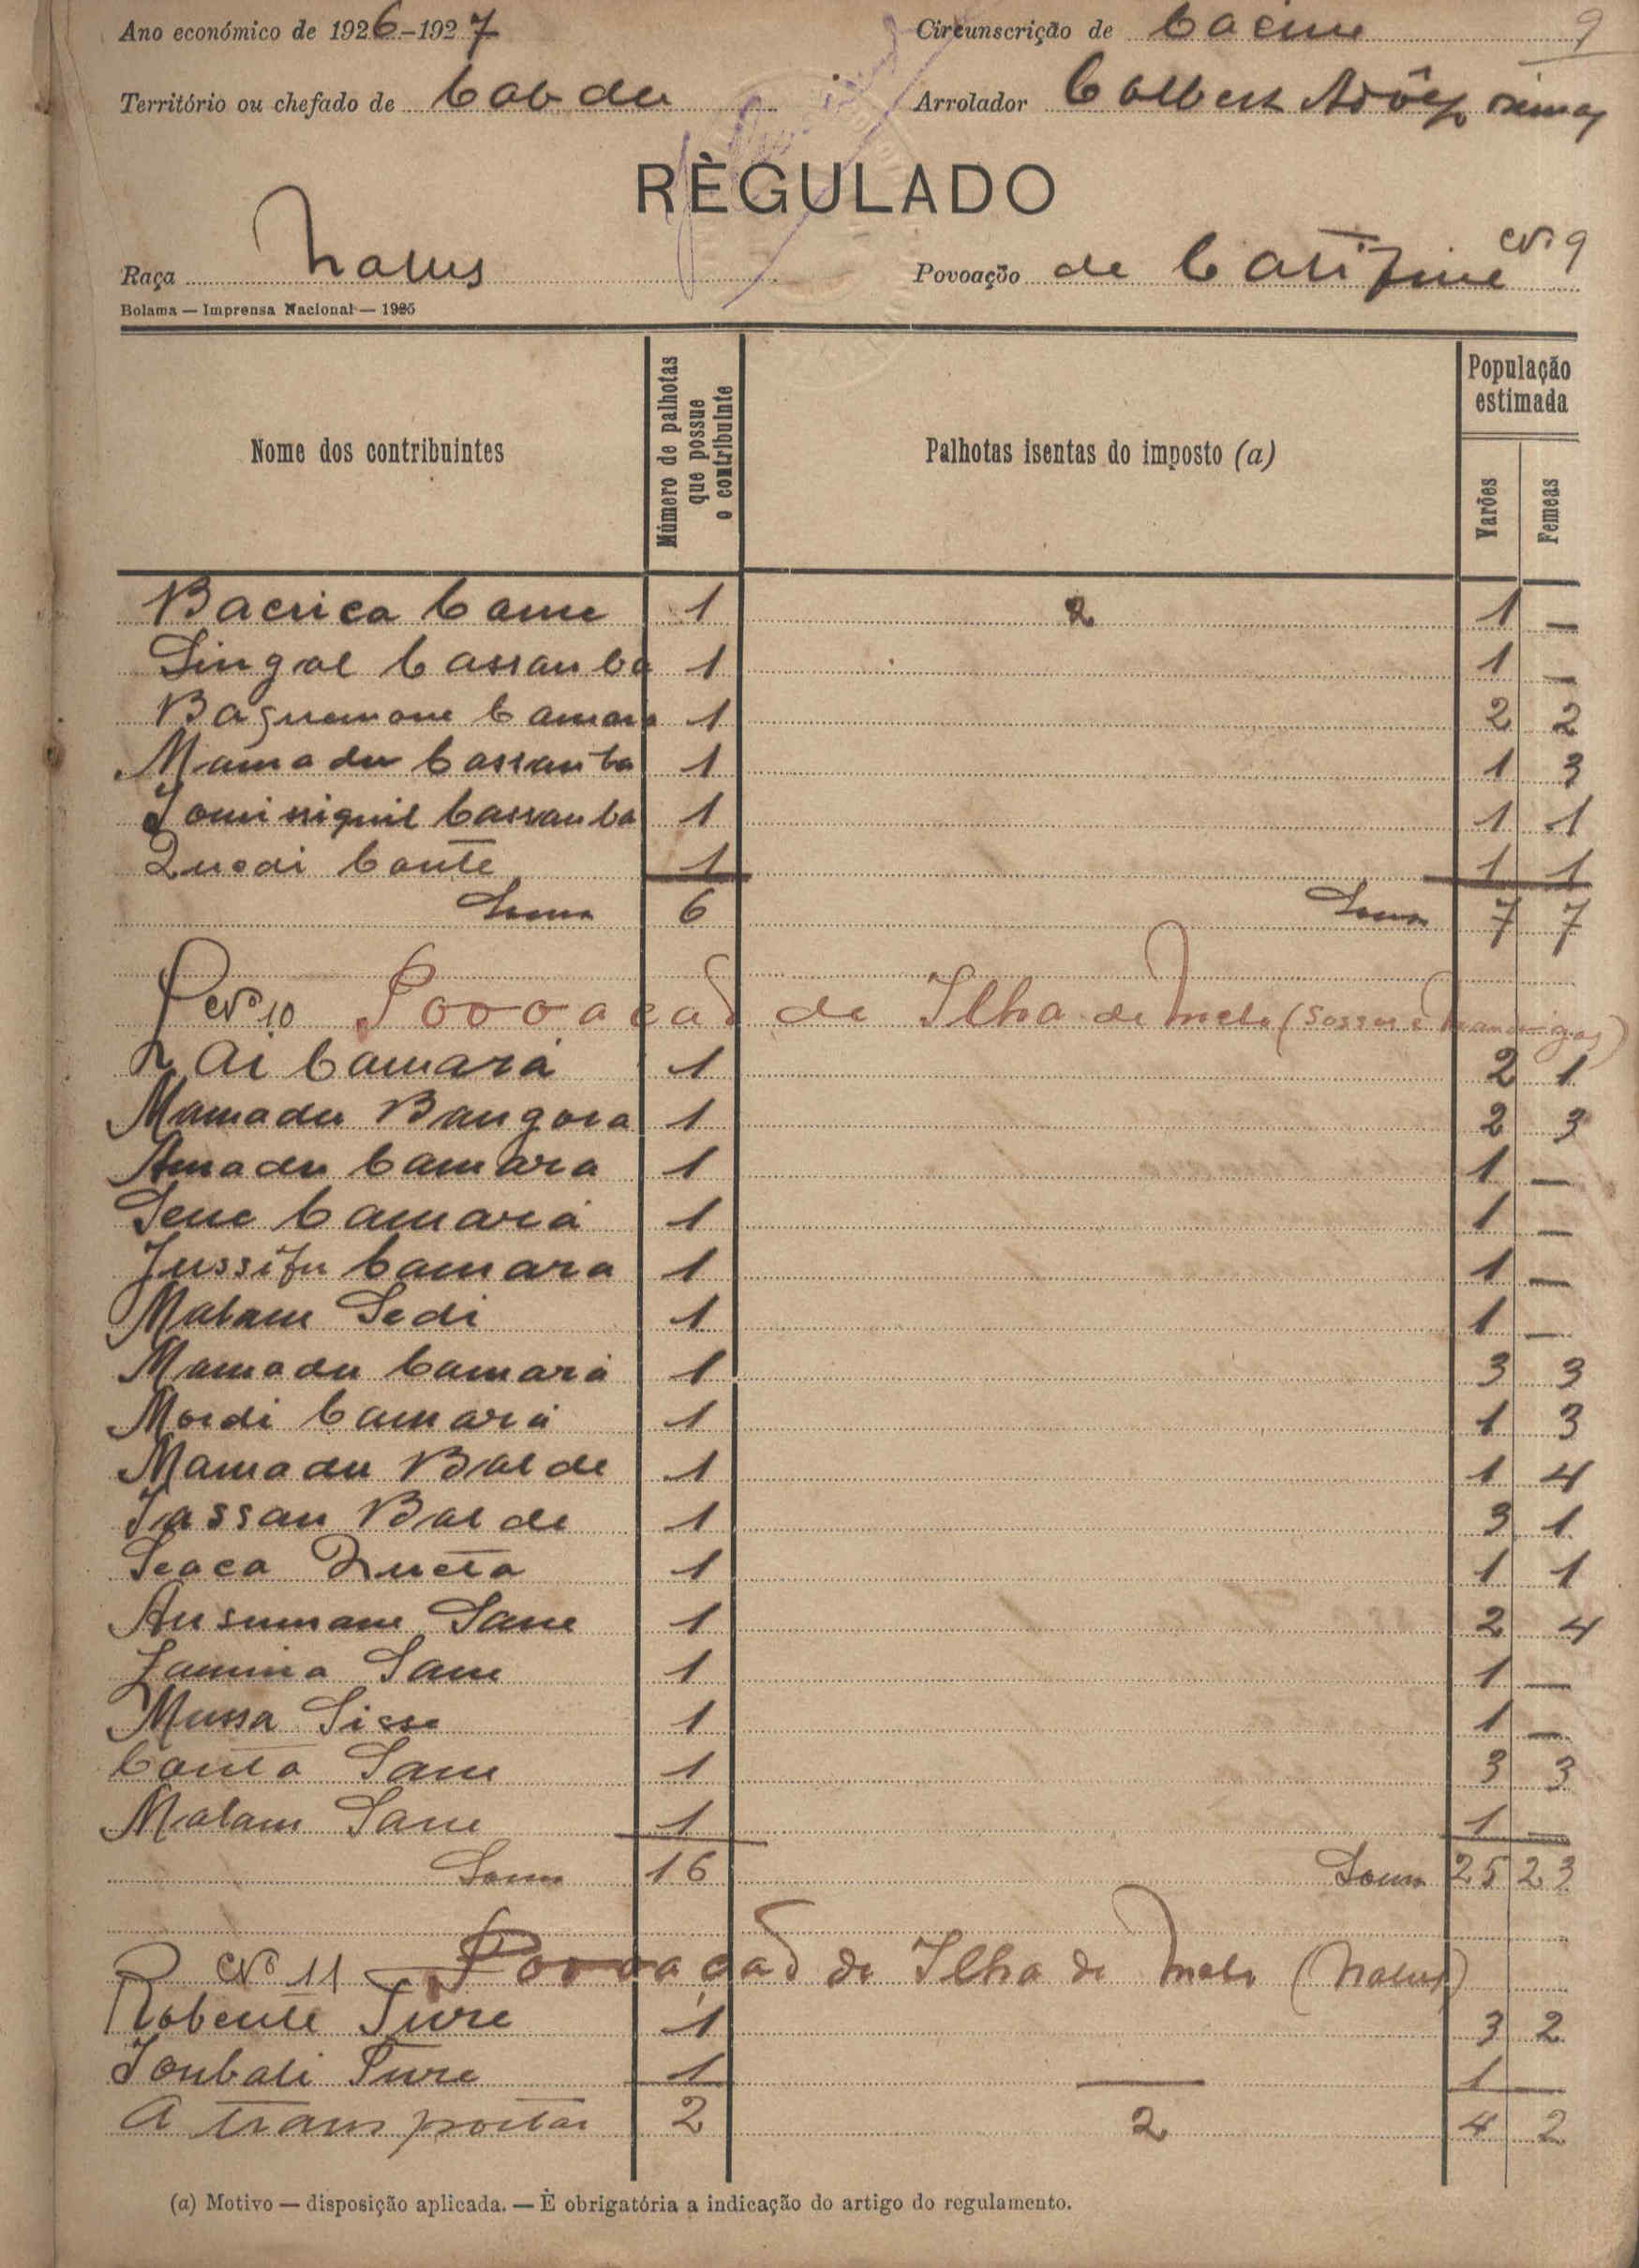 Ano económico de 1926-1927 Circunscrição de Cacine 9
Território ou chefado de Cabdu Arrolador Calbert
RÈGULADO
Raça Nalus Povoação de Catifine Nº 9
Bolama — Imprensa Nacional — 1925
Nome dos contribuintes Número de palhotas que possue o contribuinte Palhotas isentas do imposto (a) População estimada Varões Femeas
Bacrica Came 1 2 1 —
Singal Cassamba 1 1 —
Baguemane Camara 1 2 2
Mamadu Cassamba 1 1 3
Cassamba 1 1 1
Quedi Conté 1 1 1
Soma 6 Soma 7 7
Nº 10 Povoacaõ de Ilha de Melo (Sossos e Mandingas)
Lai Camará 1 2 1
Mamadu Bangora 1 2 3
Amadu Camara 1 1 —
Sene Camará 1 1 —
Jussifu Camara 1 1 —
Malam Sedi 1 1 —
Mamadu Camará 1 3 3
Mordi Camará 1 1 3
Mamadu Balde 1 1 4
Jassan Balde 1 3 1
Seaca 1 1 1
Ansumane Sane 1 2 4
Lamina Sane 1 1 —
Mussa Sisse 1 1 —
Canta Sane 1 3 3
Malam Sane 1 1 —
Soma 16 Soma 25 23
Nº 11 Povoaçaõ de Ilha de Melo (Nalus)
Robenté Ture 1 3 2
Tombali Ture 1 — 1 —
A transportar 2 2 4 2
(a) Motivo — disposição aplicada. — È obrigatória a indicação do artigo do regulamento.